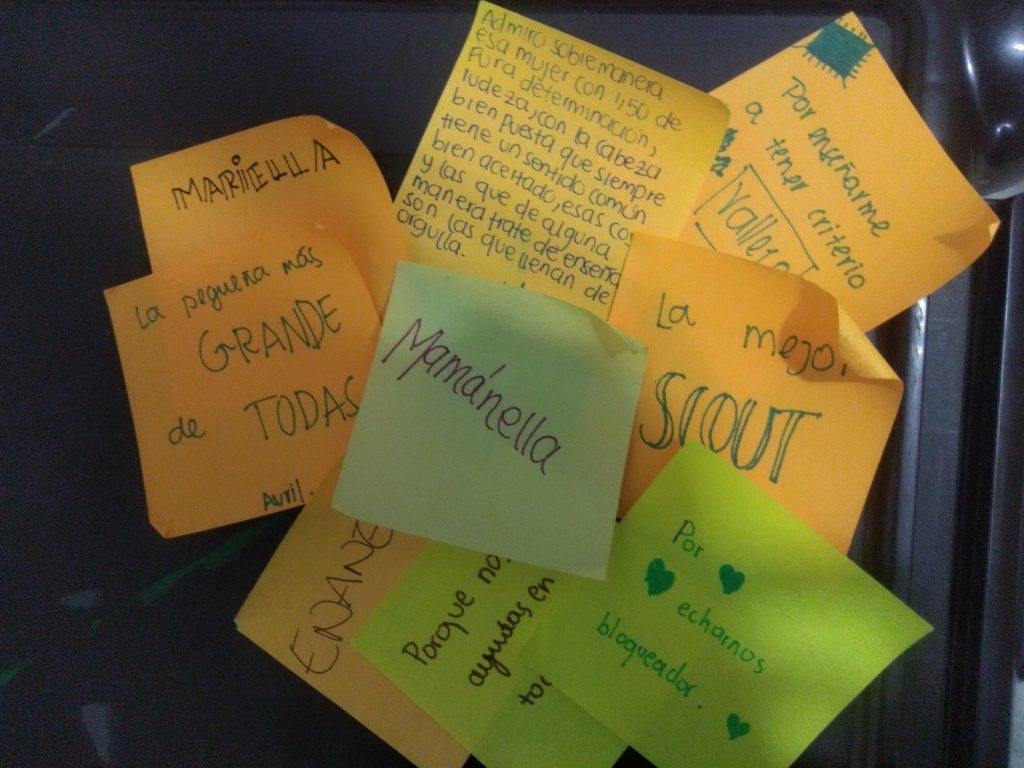 Admiro sobremanera
esa mujer con 1,50 de
Pura determinación,
rudeza, con la cabeza
bien puesta que siempre
tiene un sentido común
bien acertado, esas co
y las que de alguna
manera trate de enseña
son las que llenan de
orgulla.
Por enseñarme
a tener criterio
MARIELLLA
La pequeña más
GRANDE
de TODAS
Avril.
Mamánella
La mejor
SCOUT
ENANE
Porque nos
ayudas en
Por
echarnos
bloqueador.